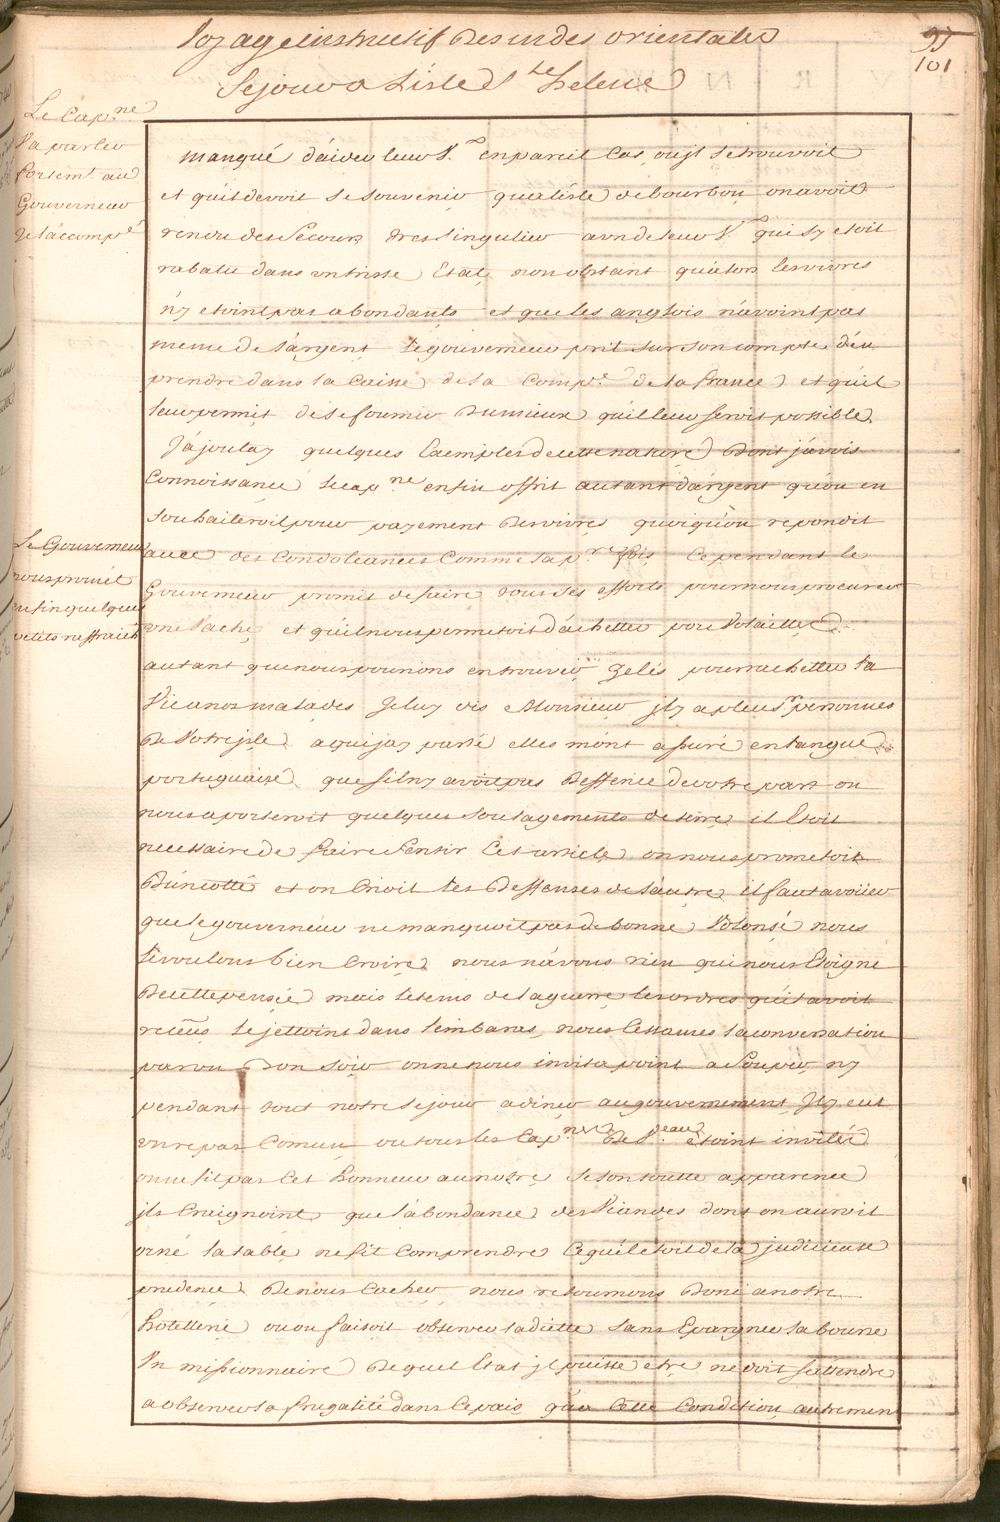 Voyage instructif Des indes orientales
Sejour a L'isle Ste helene
95
101
Le Capne
Va parler
fortemt au
Gouverneur
Je l'accompé
manqué d'aider leur V. en pareil Cas, ou jl se trouvoit
et qu'il devoit se souvenir qu'a l'isle de bourbon on avoit
rendu des Secours tres singulier a un de leur Vau qui s'y etoit
rabatu dans un triste Etat, non obstant qu'alors les vivres
n'y etoint pas abondants et que les anglois n'avoint pas
meme de l'argent le gouverneur prit sur son compte d'en
prendre dans la Caisse de la Compe de la france et qu'il
leur permit de se fournir Du mieux qu'il leur seroit possible.
J'ajoutay quelques Exemples de cette nature Dont j'avois
Connoissance le capne enfin offrit autant d'argent qu'on en
souhaiteroit pour payement Des vivres quoiqu'on repondit
avec des Condoleances Comme la pre fois Cependant le
Le Gouverneur
nous promet
enfin quelques
petits raffraichts
Gouverneur promit de faire tous ses efforts pour nous procurer
une Vache et qu'il nous permetoit d'achetter por Volailles
autant que nous pourions en trouver Zelés pour rachetter la
Vie a nos malades Je luy dis Monsieur jl y a pleusrs personnes
De Votre jsle a qui j'ay parlé elles m'ont assuré en langue
portuguaise que s'il n'y avoit pas Deffence de votre part on
nous aporteroit quelques soulagements de terre il Etoit
necessaire de faire sentir Cet article on nous prometoit
D'un cotté et on Crioit les Deffenses de l'autre il faut avoüer
que le gouverneur ne manquoit pas de bonne Volonté nous
le voulons bien Croire nous n'avons rien qui nous Eloigne
De cette pensée mais le tems de la guerre les ordres qu'il avoit
receus le jettoint dans l'embaras, nous Cessames la conversation
par un Bon soir on ne nous invita point a Souper ny
pendant tout notre sejour a diner au gouvernement Jl y eut
un repas Comun ou tous les Capnes De Veaux etoint invités
on ne fit pas Cet honneur au notre selon toutte apparence
jls Craignoint que l'abondance des Viandes dont on auroit
orné la table ne fit Comprendre Ce qu'il etoit de la judicieuse
prudence De nous Cacher nous retournons Donc a notre
hotellerie ou on faisoit observer la diette sans Epargner la bourse
Un missionnaire De quel Etat jl puisse etre ne doit s'attendre
a observer la frugalité dans Ce pais qu'a Cette Condition autrement